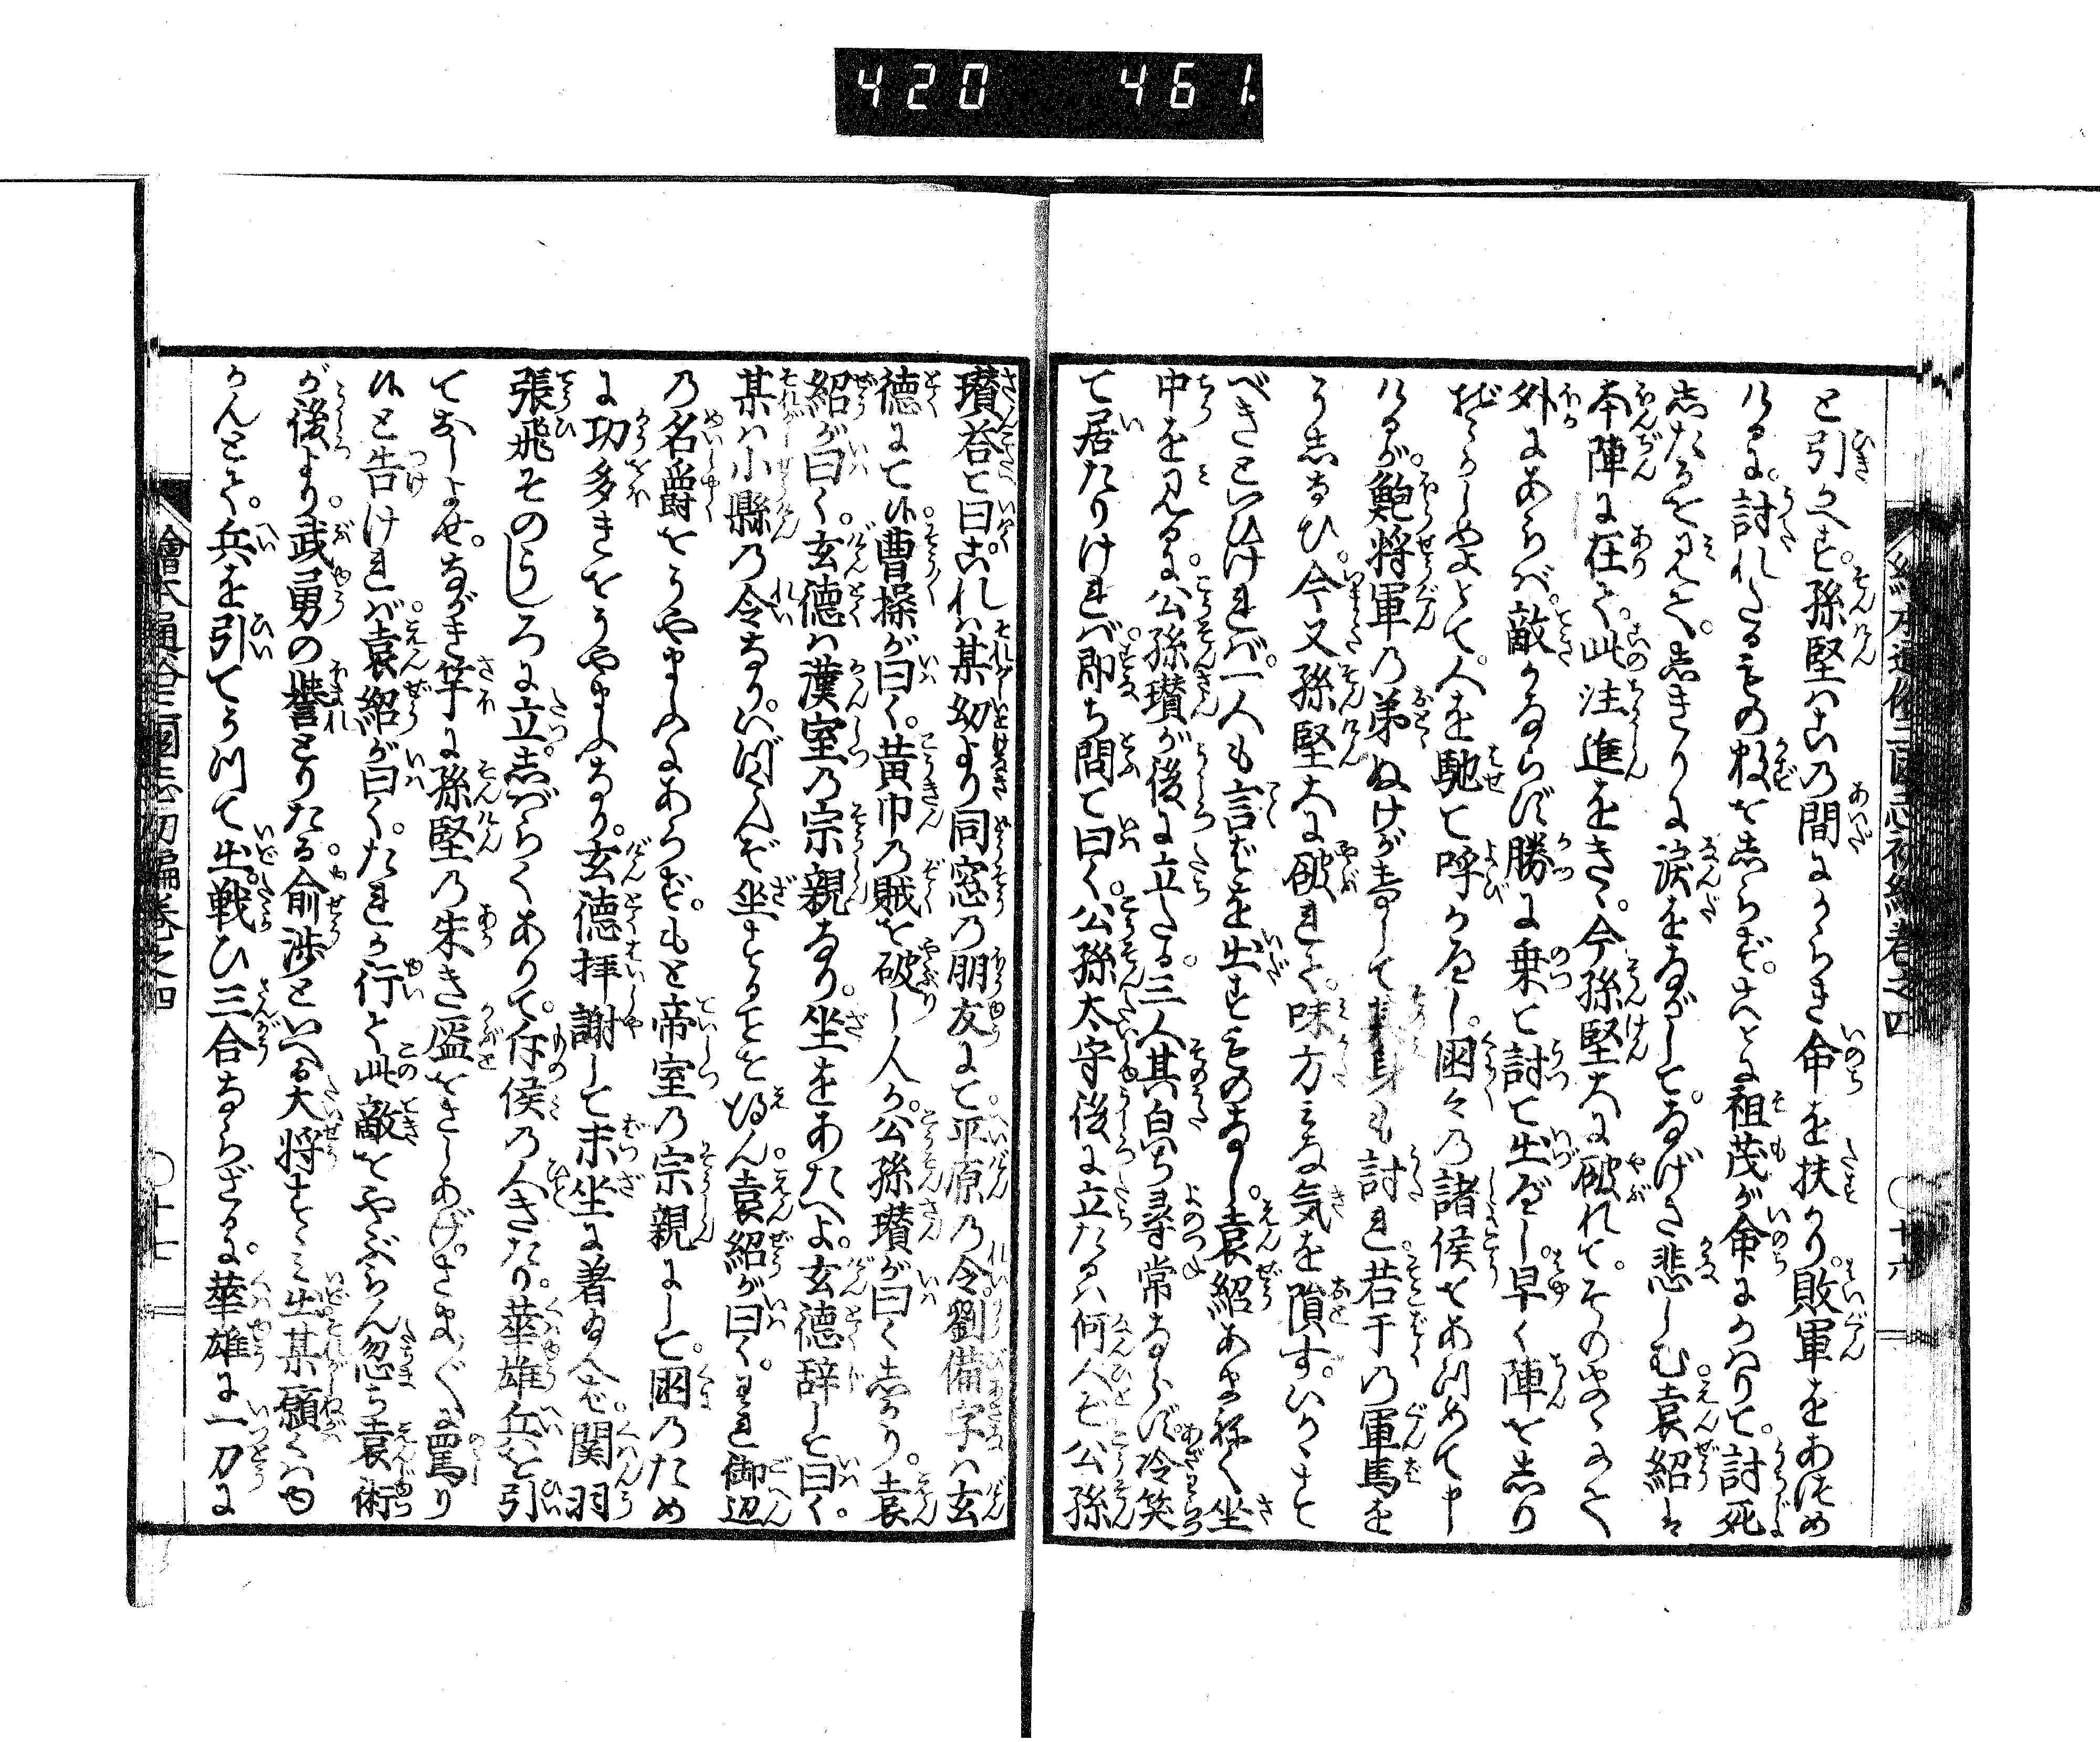 420 461
繪本通俗三國志初編卷之四 〇十六
と引かへす。孫堅はこの間にからき命を扶かり。敗軍をあつめ
けるに。討れたるものの数をしらず。ことに祖茂が命にかはりて。討死
したるを見て。しきりに涙をながして。なげき悲しむ袁紹は
本陣に在て。此注進をきゝ。今孫堅大に破れて。そのいきほひ
外にあらば。敵かならず勝に乗て討て出べし。早く陣をしり
ぞかしめよとて。人を馳て呼かへし。国々の諸侯をあつめて申
けるが。鮑将軍の弟ぬけがけして其身も討れ。若干の軍馬を
うしなひ。今又孫堅大に破れて。味方みな気を隕す。いかゝすと
べきといひけれバ。一人も言ばを出すものなし。袁紹あまねく坐
中を見るに。公孫瓚が後に立たる。三人其自ち尋常ならず。冷笑
て居たりけれバ。即ち問て曰く。公孫太守後に立たるハ何人ぞ公孫
瓚答て曰これハ某幼より同窓の朋友にて。平原の令劉備字ハ玄
徳にて候。曹操が曰く。黄巾の賊を破し人か。公孫瓚が曰くしかり。袁
紹が曰く。玄徳ハ漢室の宗親なり。坐をあたへよ。玄徳辞して曰く。
某ハ小縣の令なり。いづくんぞ坐することを得ん。袁紹が曰く。われ御辺
の名爵をうやまふにあらず。もと帝室の宗親にして。国のため
に功多きをうやまふなり。玄徳拝謝して末坐に着給へば。関羽
張飛そのうしろに立。しばらくありて。斥侯の人きたり。華雄兵を引
ておしよせ。ながき竿に孫堅の朱き盔をさしあげ。さま〴〵に罵り
候と告けれバ。袁紹が曰く。たれか行て此敵をやぶらん。忽ち袁術
が後より。武勇の誉とりたる。俞渉といへる大将すゝみ出。某願くハゆ
かんとて。兵を引てうつて出。戦ひ三合ならざるに。華雄に一刀に
繪本通俗三國志初編卷之四 〇十七